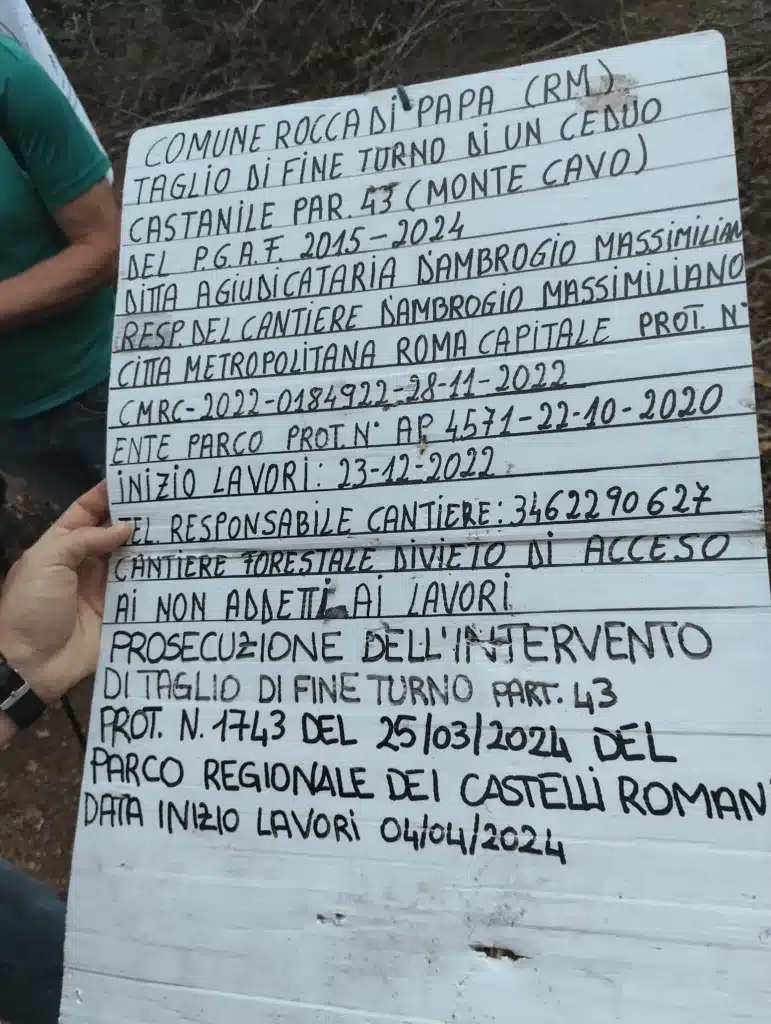 COMUNE ROCCA DI PAPA (RM)
TAGLIO DI FINE TURNO DI UN CEDUO
CASTANILE PAR. 43 (MONTE CAVO)
DEL P.G.A.F. 2015-2024
DITTA AGIUDICATARIA D'AMBROGIO MASSIMILIAN
RESP. DEL CANTIERE D'AMBROGIO MASSIMILIANO
CITTA METROPOLITANA ROMA CAPITALE PROT. N°
CMRC-2022-0184922-28-11-2022
ENTE PARCO PROT. N° AP 4571-22-10-2020
INIZIO LAVORI: 23-12-2022
TEL. RESPONSABILE CANTIERE: 3462290627
CANTIERE FORESTALE DIVIETO DI ACCESO
AI NON ADDETTI AI LAVORI
PROSECUZIONE DELL'INTERVENTO
DI TAGLIO DI FINE TURNO PART. 43
PROT. N. 1743 DEL 25/03/2024 DEL
PARCO REGIONALE DEI CASTELLI ROMANI
DATA INIZIO LAVORI 04/04/2024